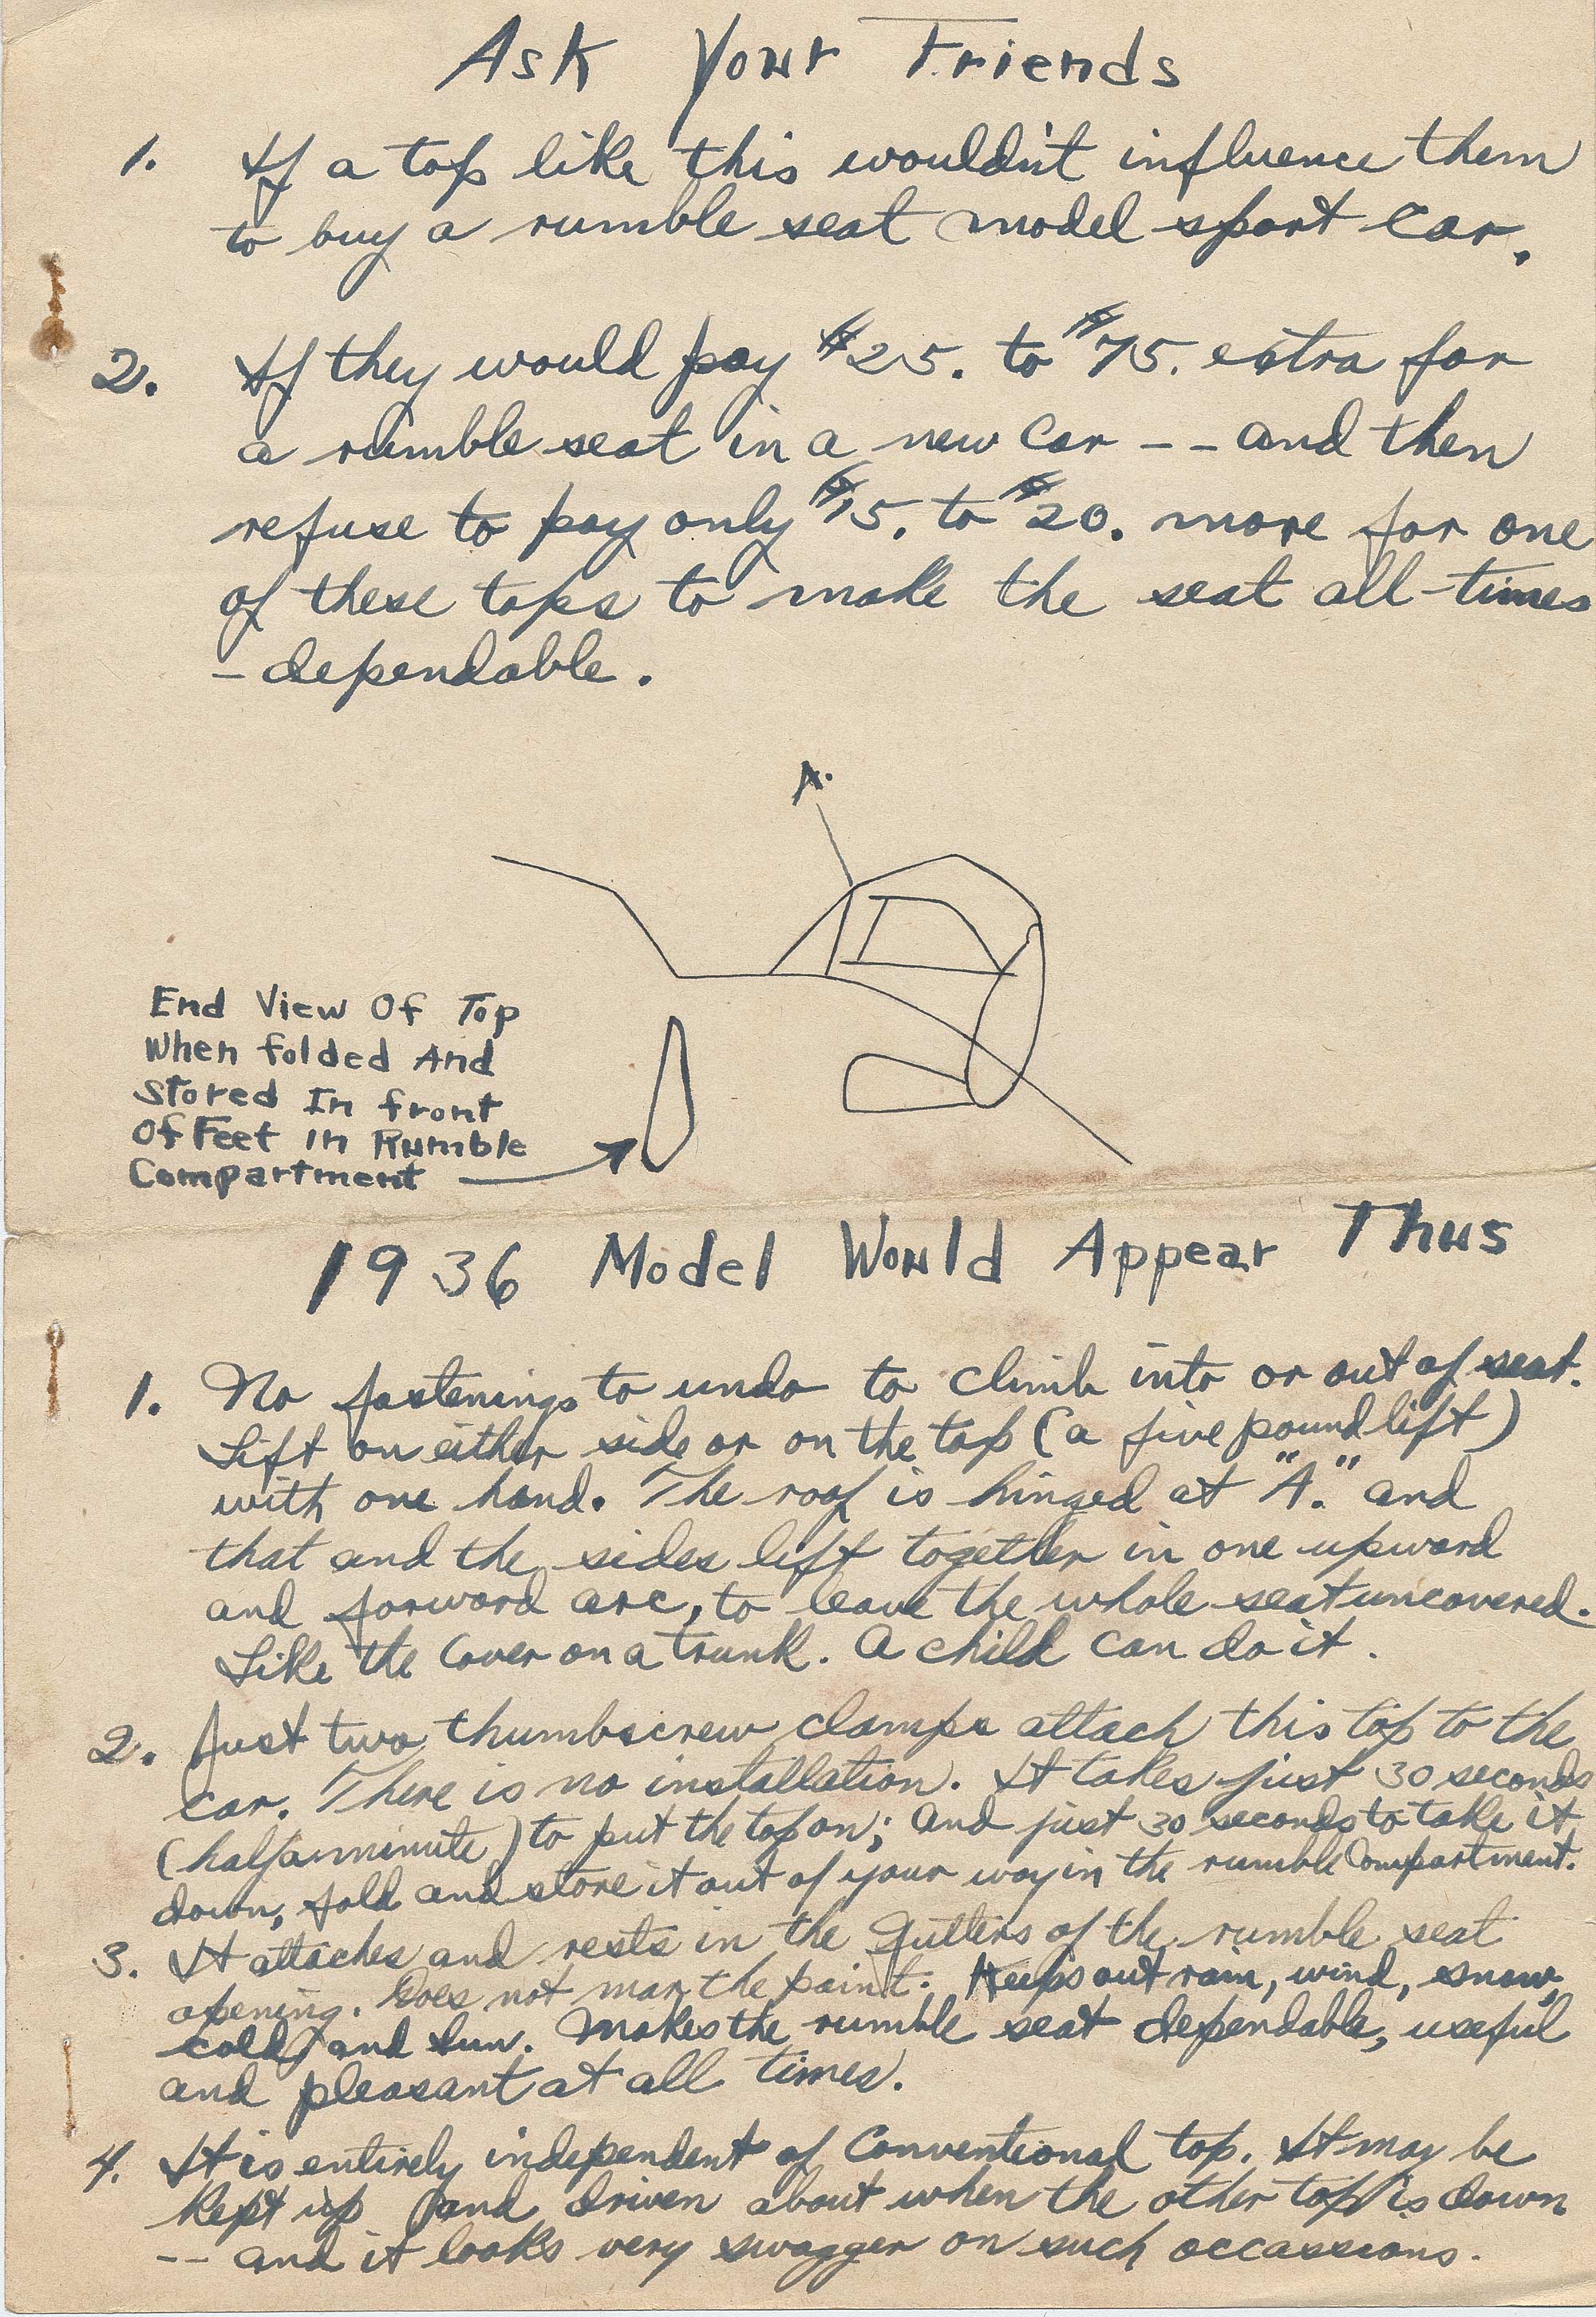 Ask Your Friends
1. If a top like this wouldn't influence them
to buy a rumble seat model sport car.
2. If they would pay $25. to $75. extra for
a rumble seat in a new car -- and then
refuse to pay only $15. to $20. more for one
of these tops to make the seat all-times
-dependable.
A.
End View Of Top
When folded And
Stored In front
Of Feet in Rumble
Compartment
1936 Model Would Appear Thus
1. No fastenings to undo to climb into or out of seat.
Lift on either side or on the top (a five pound lift)
with one hand. The roof is hinged at "A." and
that and the sides left together in one upward
and forward arc, to leave the whole seat uncovered.
Like the cover on a trunk. A child can do it.
2. Just two thumbscrew clamps attach this top to the
car. There is no installation. It takes just 30 seconds
(half a minute) to put the top on; and just 30 seconds to take it
down, fold and store it out of your way in the rumble compartment.
3. It attaches and rests in the gutters of the rumble seat
opening. Does not mar the paint. Keeps out rain, wind, snow,
cold, and sun. Makes the rumble seat dependable, useful
and pleasant at all times.
4. It is entirely independent of conventional top. It may be
kept up and driven about when the other top is down
-- and it looks very swagger on such occassions.